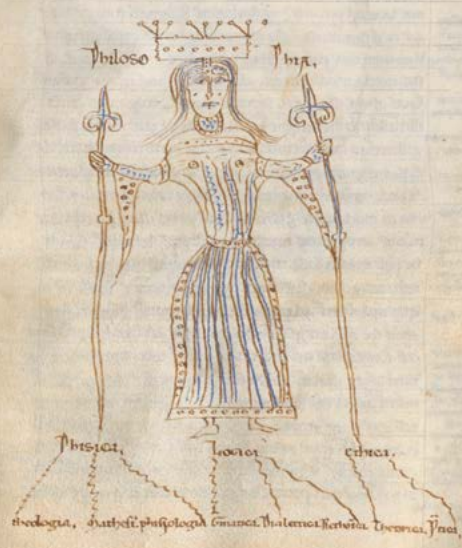 Philoso Phia,
Phisica, Loica ethica.
theologia, mathesi phisiologia Gmatica Dialetica Rethorica Theorica